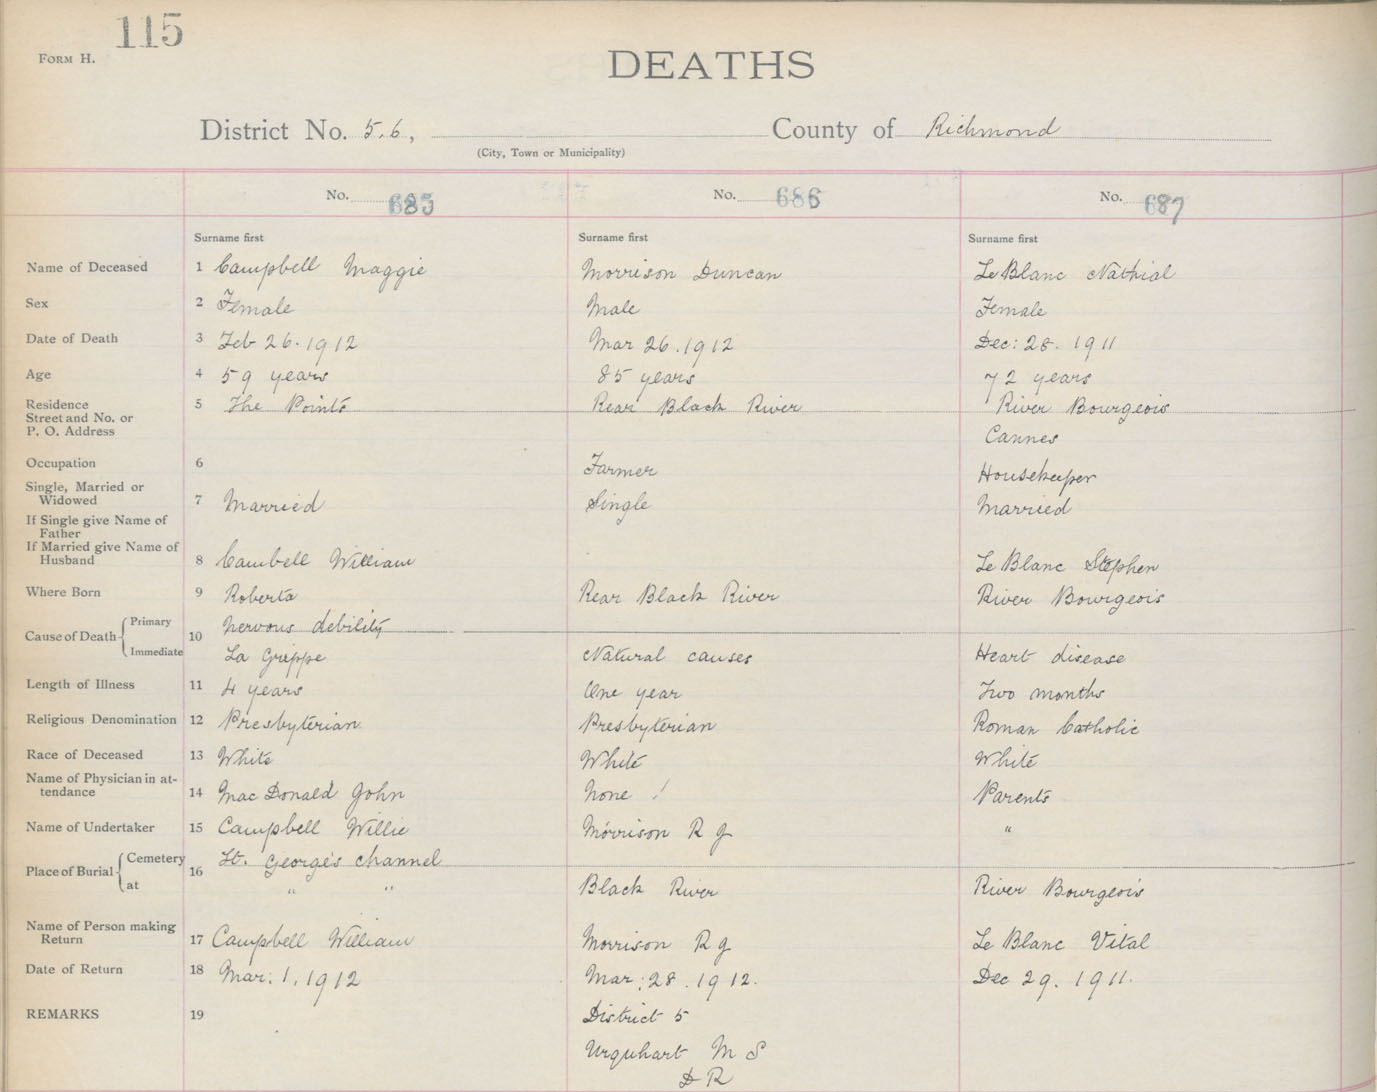 115
FORM H.
DEATHS
District No. 5.6, County of Richmond
(City, Town or Municipality)
No. 685 No. 686 No. 687
Surname first Surname first Surname first
Name of Deceased 1 Campbell Maggie Morrison Duncan Le Blanc Nathial
Sex 2 Female Male Female
Date of Death 3 Feb 26. 1912 Mar 26. 1912 Dec: 28. 1911
Age 4 59 years 85 years 72 years
Residence 5 The Points Rear Black River River Bourgeois
Street and No. or
P. O. Address Cannes
Occupation 6 Farmer Housekeeper
Single, Married or
Widowed 7 Married Single Married
If Single give Name of
Father
If Married give Name of
Husband 8 Cambell William Le Blanc Stephen
Where Born 9 Roberta Rear Black River River Bourgeois
Cause of Death Primary 10 Nervous debility
Immediate La Grippe Natural causes Heart disease
Length of Illness 11 4 years One year Two months
Religious Denomination 12 Presbyterian Presbyterian Roman Catholic
Race of Deceased 13 White White White
Name of Physician in at-
tendance 14 Mac Donald John None ! Parents
Name of Undertaker 15 Campbell Willie Morrison R J "
Place of Burial Cemetery 16 St. George's Channel
at " " Black River River Bourgeois
Name of Person making
Return 17 Campbell William Morrison R J Le Blanc Vital
Date of Return 18 Mar: 1. 1912 Mar: 28. 1912. Dec 29. 1911.
REMARKS 19 District 5
Urquhart M S
D R